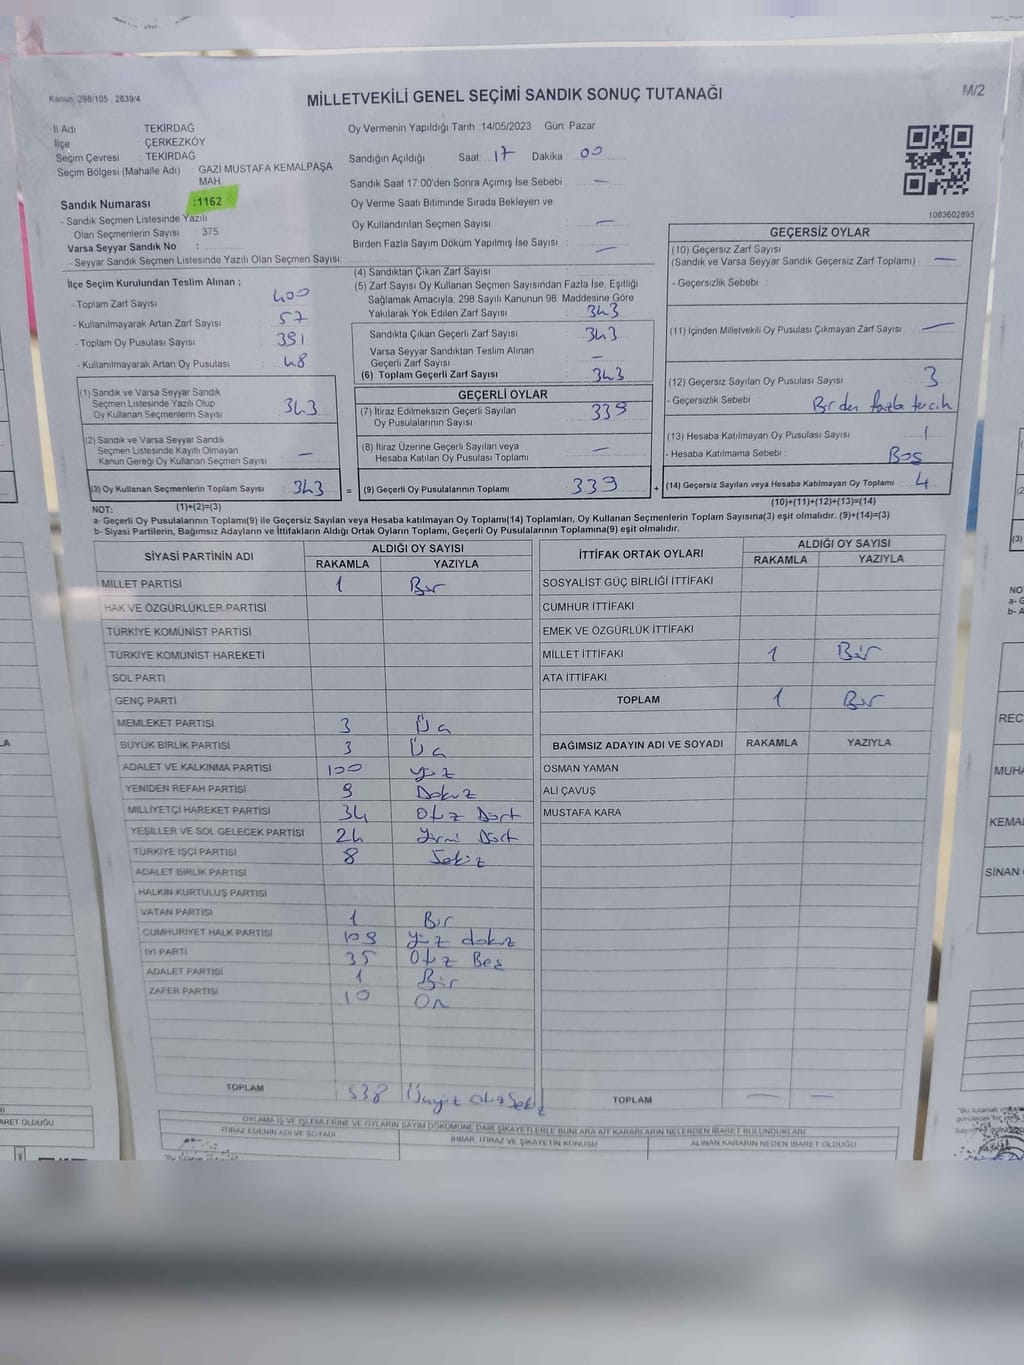 Kanun: 298/105, 2839/4
MİLLETVEKİLİ GENEL SEÇİMİ SANDIK SONUÇ TUTANAĞI
M/2
İl Adı : TEKİRDAĞ
İlçe : ÇERKEZKÖY
Seçim Çevresi : TEKİRDAĞ
Seçim Bölgesi (Mahalle Adı) : GAZİ MUSTAFA KEMALPAŞA MAH.
Sandık Numarası :1162
- Sandık Seçmen Listesinde Yazılı
Olan Seçmenlerin Sayısı : 375
Varsa Seyyar Sandık No :
- Seyyar Sandık Seçmen Listesinde Yazılı Olan Seçmen Sayısı:
Oy Vermenin Yapıldığı Tarih :14/05/2023 Gün: Pazar
Sandığın Açıldığı Saat: 17 Dakika : 00
Sandık Saat 17:00'den Sonra Açılmış İse Sebebi : —
Oy Verme Saati Bitiminde Sırada Bekleyen ve
Oy Kullandırılan Seçmen Sayısı : —
Birden Fazla Sayım Döküm Yapılmış İse Sayısı : —
1083602895
İlçe Seçim Kurulundan Teslim Alınan ;
- Toplam Zarf Sayısı : 400
- Kullanılmayarak Artan Zarf Sayısı : 57
- Toplam Oy Pusulası Sayısı : 391
- Kullanılmayarak Artan Oy Pusulası : 48
(1) Sandık ve Varsa Seyyar Sandık
Seçmen Listesinde Yazılı Olup
Oy Kullanan Seçmenlerin Sayısı : 343
(2) Sandık ve Varsa Seyyar Sandık
Seçmen Listesinde Kayıtlı Olmayan
Kanun Gereği Oy Kullanan Seçmen Sayısı : —
(3) Oy Kullanan Seçmenlerin Toplam Sayısı : 343
(1)+(2)=(3)
(4) Sandıktan Çıkan Zarf Sayısı
(5) Zarf Sayısı Oy Kullanan Seçmen Sayısından Fazla İse, Eşitliği
Sağlamak Amacıyla, 298 Sayılı Kanunun 98. Maddesine Göre
Yakılarak Yok Edilen Zarf Sayısı : 343
Sandıkta Çıkan Geçerli Zarf Sayısı : 343
Varsa Seyyar Sandıktan Teslim Alınan
Geçerli Zarf Sayısı : —
(6) Toplam Geçerli Zarf Sayısı : 343
GEÇERLİ OYLAR
(7) İtiraz Edilmeksizin Geçerli Sayılan
Oy Pusulalarının Sayısı : 339
(8) İtiraz Üzerine Geçerli Sayılan veya
Hesaba Katılan Oy Pusulası Toplamı : —
= (9) Geçerli Oy Pusulalarının Toplamı : 339 +
GEÇERSİZ OYLAR
(10) Geçersiz Zarf Sayısı
(Sandık ve Varsa Seyyar Sandık Geçersiz Zarf Toplamı) : —
- Geçersizlik Sebebi :
(11) İçinden Milletvekili Oy Pusulası Çıkmayan Zarf Sayısı : —
(12) Geçersiz Sayılan Oy Pusulası Sayısı : 3
- Geçersizlik Sebebi : Birden fazla tercih
(13) Hesaba Katılmayan Oy Pusulası Sayısı : 1
- Hesaba Katılmama Sebebi : Boş
(14) Geçersiz Sayılan veya Hesaba Katılmayan Oy Toplamı : 4
(10)+(11)+(12)+(13)=(14)
NOT:
a- Geçerli Oy Pusulalarının Toplamı(9) ile Geçersiz Sayılan veya Hesaba katılmayan Oy Toplamı(14) Toplamları, Oy Kullanan Seçmenlerin Toplam Sayısına(3) eşit olmalıdır. (9)+(14)=(3)
b- Siyasi Partilerin, Bağımsız Adayların ve İttifakların Aldığı Ortak Oyların Toplamı, Geçerli Oy Pusulalarının Toplamına(9) eşit olmalıdır.
SİYASİ PARTİNİN ADI ALDIĞI OY SAYISI
RAKAMLA YAZIYLA
MİLLET PARTİSİ 1 Bir
HAK VE ÖZGÜRLÜKLER PARTİSİ
TÜRKİYE KOMÜNİST PARTİSİ
TÜRKİYE KOMÜNİST HAREKETİ
SOL PARTİ
GENÇ PARTİ
MEMLEKET PARTİSİ 3 Üç
BÜYÜK BİRLİK PARTİSİ 3 Üç
ADALET VE KALKINMA PARTİSİ 100 yüz
YENİDEN REFAH PARTİSİ 9 Dokuz
MİLLİYETÇİ HAREKET PARTİSİ 34 Otuz Dört
YEŞİLLER VE SOL GELECEK PARTİSİ 24 Yirmi Dört
TÜRKİYE İŞÇİ PARTİSİ 8 Sekiz
ADALET BİRLİK PARTİSİ
HALKIN KURTULUŞ PARTİSİ
VATAN PARTİSİ 1 Bir
CUMHURİYET HALK PARTİSİ 109 yüz dokuz
İYİ PARTİ 35 Otuz Beş
ADALET PARTİSİ 1 Bir
ZAFER PARTİSİ 10 On
TOPLAM 338 Üçyüz Otuz Sekiz
İTTİFAK ORTAK OYLARI ALDIĞI OY SAYISI
RAKAMLA YAZIYLA
SOSYALİST GÜÇ BİRLİĞİ İTTİFAKI
CUMHUR İTTİFAKI
EMEK VE ÖZGÜRLÜK İTTİFAKI
MİLLET İTTİFAKI 1 Bir
ATA İTTİFAKI
TOPLAM 1 Bir
BAĞIMSIZ ADAYIN ADI VE SOYADI RAKAMLA YAZIYLA
OSMAN YAMAN
ALİ ÇAVUŞ
MUSTAFA KARA
TOPLAM — —
OYLAMA İŞ VE İŞLEMLERİNE VE OYLARIN SAYIM DÖKÜMÜNE DAİR ŞİKAYETLERLE BUNLARA AİT KARARLARIN NELERDEN İBARET BULUNDUKLARI
İTİRAZ EDENİN ADI VE SOYADI İHBAR, İTİRAZ VE ŞİKAYETİN KONUSU ALINAN KARARIN NEDEN İBARET OLDUĞU